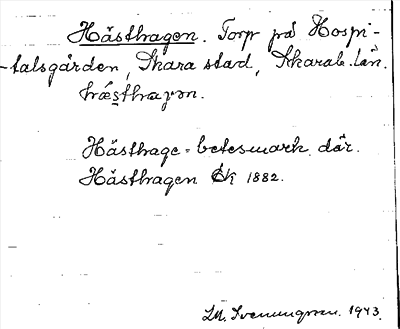 Hästhagen. Torp på Hospi-
talsgården, Skara stad, Skarab. län.
hästhagen.
Hästhage = betesmark där.
Hästhagen EK 1882.
Svenungsson. 1943.